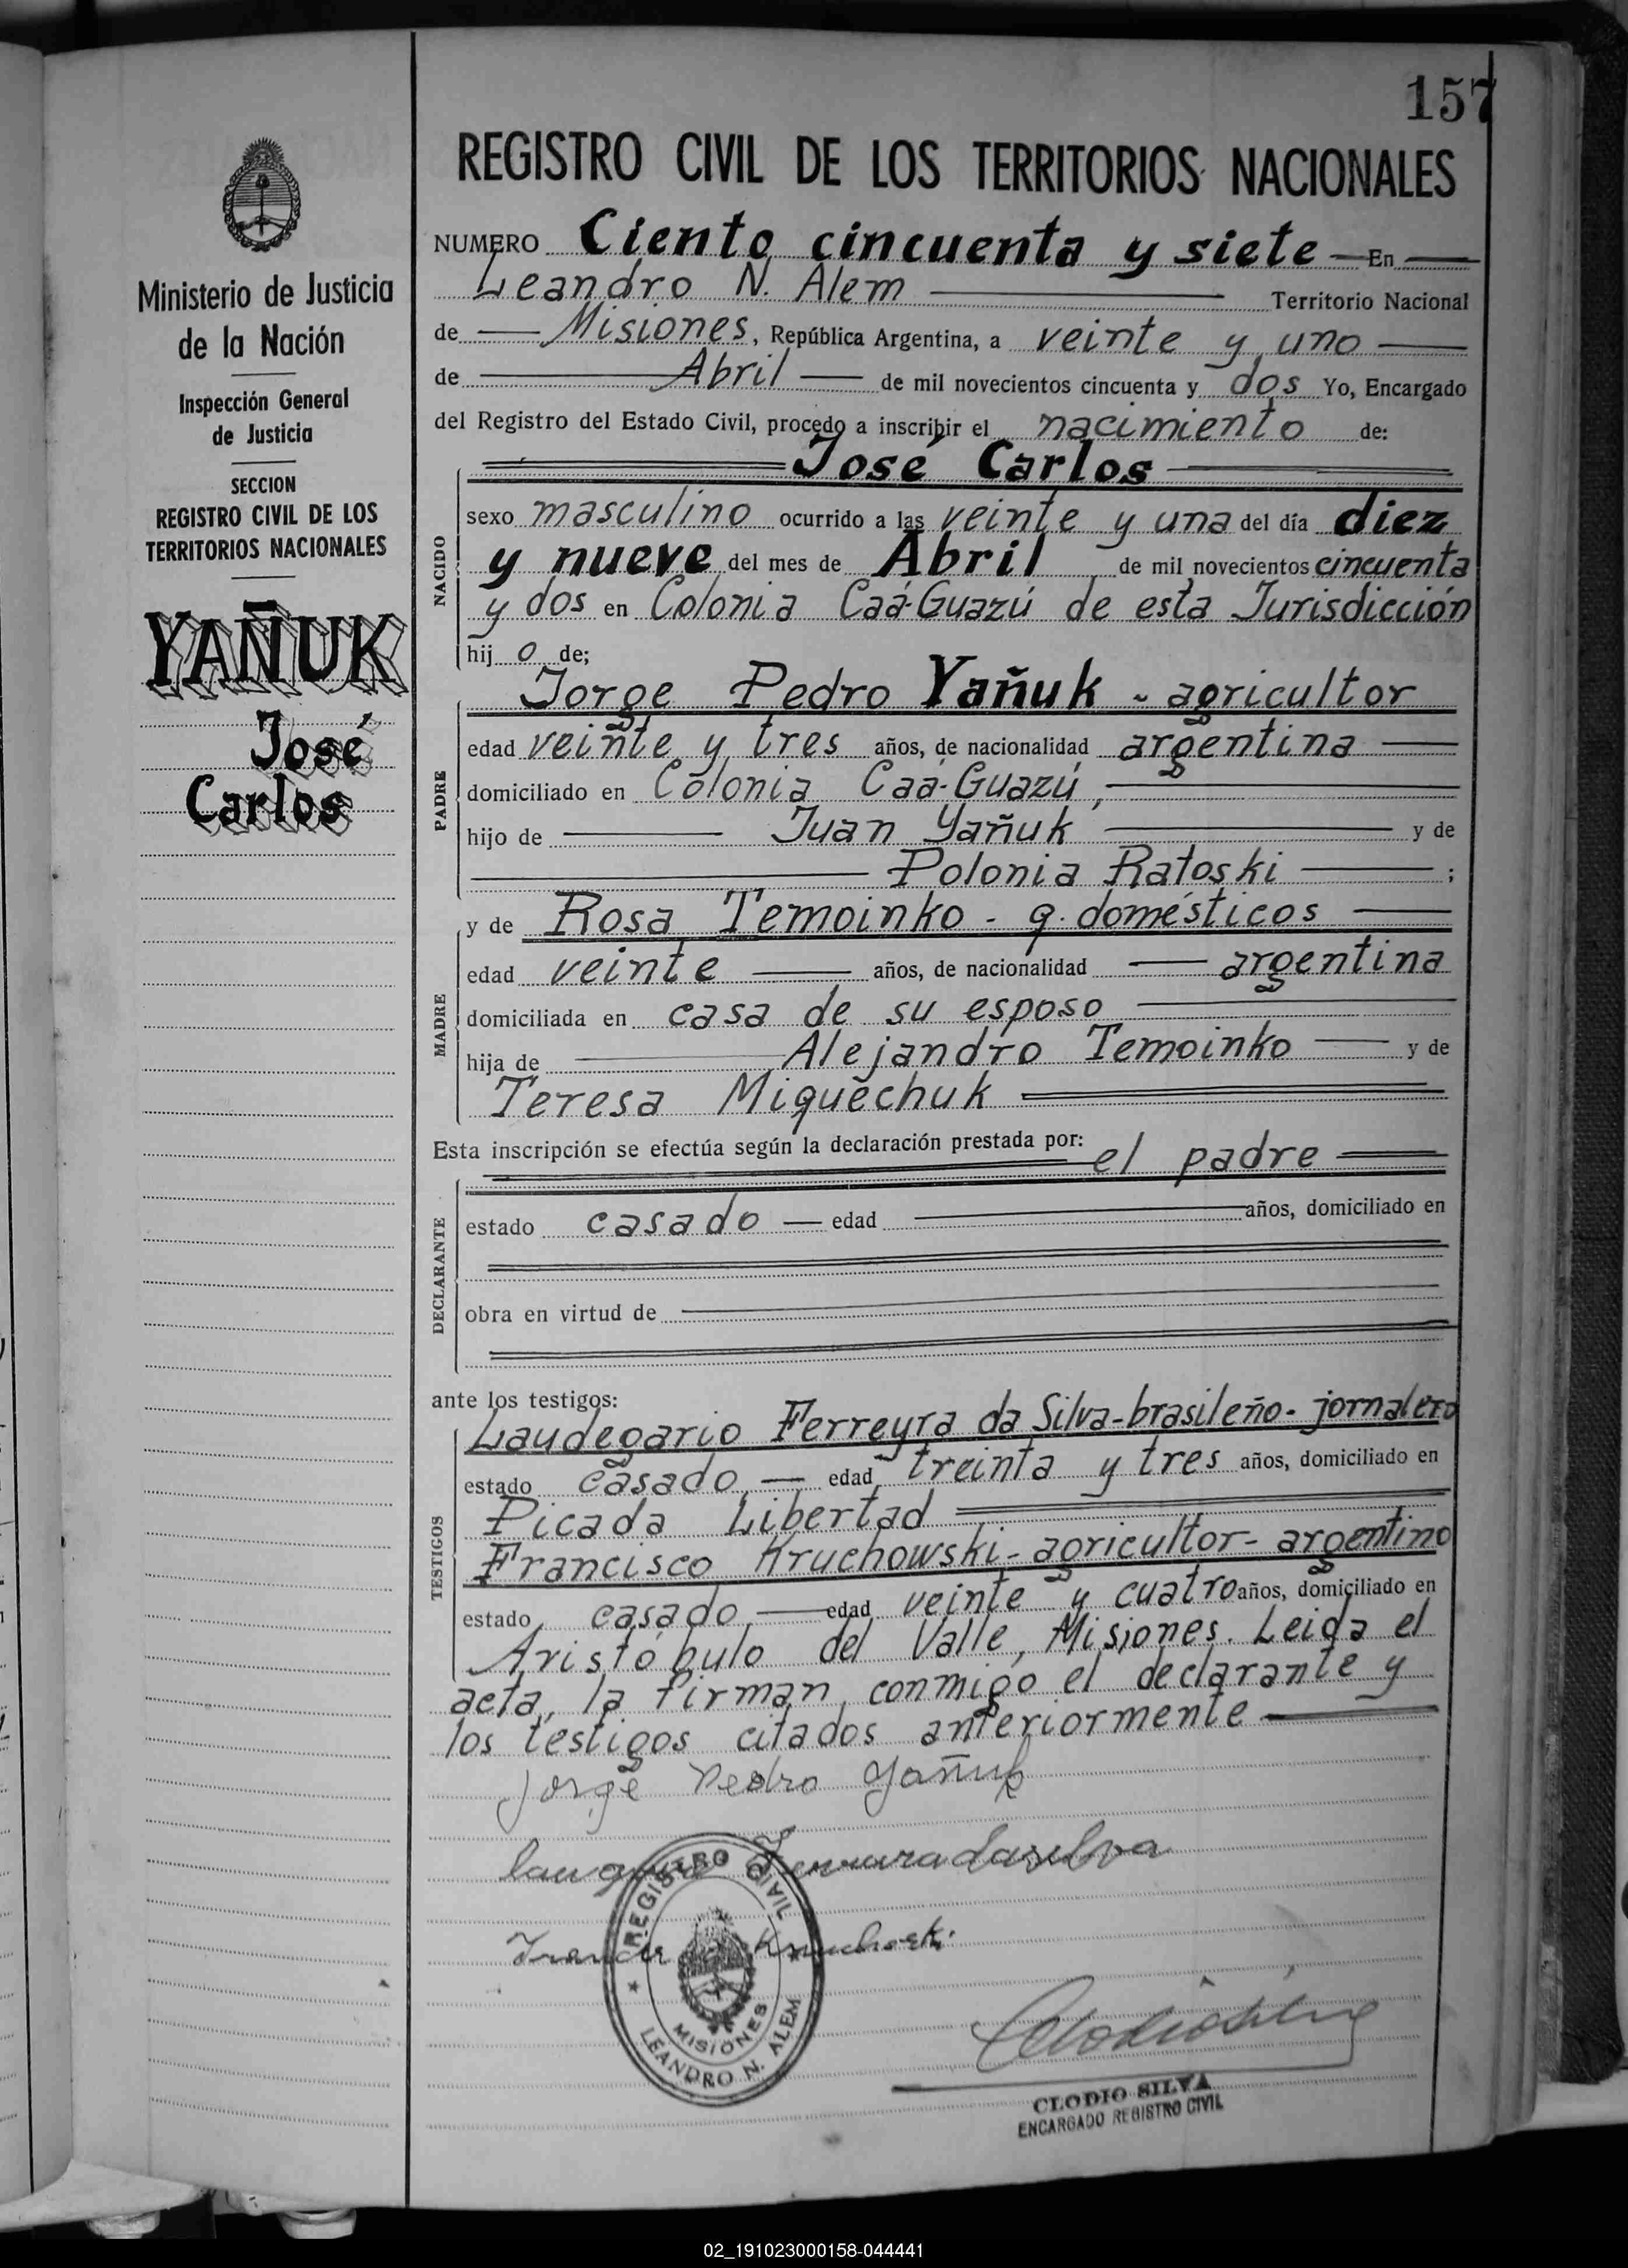 157
REGISTRO CIVIL DE LOS TERRITORIOS NACIONALES
Ministerio de Justicia
de la Nación
Inspección General
de Justicia
SECCION
REGISTRO CIVIL DE LOS
TERRITORIOS NACIONALES
YAÑUK
José
Carlos
NUMERO Ciento cincuenta y siete En
Leandro N. Alem Territorio Nacional
de Misiones, República Argentina, a veinte y uno
de Abril de mil novecientos cincuenta y dos Yo, Encargado
del Registro del Estado Civil, procedo a inscribir el nacimiento de:
NACIDO
José Carlos
sexo masculino ocurrido a las veinte y una del día diez
y nueve del mes de Abril de mil novecientos cincuenta
y dos en Colonia Caá-Guazú de esta Jurisdicción
hij o de;
PADRE
Jorge Pedro Yañuk - agricultor
edad veinte y tres años, de nacionalidad argentina
domiciliado en Colonia Caá-Guazú,
hijo de Juan Yañuk y de
Polonia Ratoski ;
MADRE
y de Rosa Temoinko - q. domésticos
edad veinte años, de nacionalidad argentina
domiciliada en casa de su esposo
hija de Alejandro Temoinko y de
Teresa Miquechuk
Esta inscripción se efectúa según la declaración prestada por:
el padre
DECLARANTE
estado casado edad años, domiciliado en
obra en virtud de
ante los testigos:
TESTIGOS
Laudegario Ferreyra da Silva-brasileño-jornalero
estado casado edad treinta y tres años, domiciliado en
Picada Libertad
Francisco Kruchowski-agricultor-argentino
estado casado edad veinte y cuatro años, domiciliado en
Aristóbulo del Valle, Misiones. Leida el
acta, la firman conmigo el declarante y
los testigos citados anteriormente
Jorge Pedro Yañuk
dasilva
REGISTRO CIVIL
MISIONES
LEANDRO N. ALEM
CLODIO SILVA
ENCARGADO REGISTRO CIVIL
02_191023000158-044441